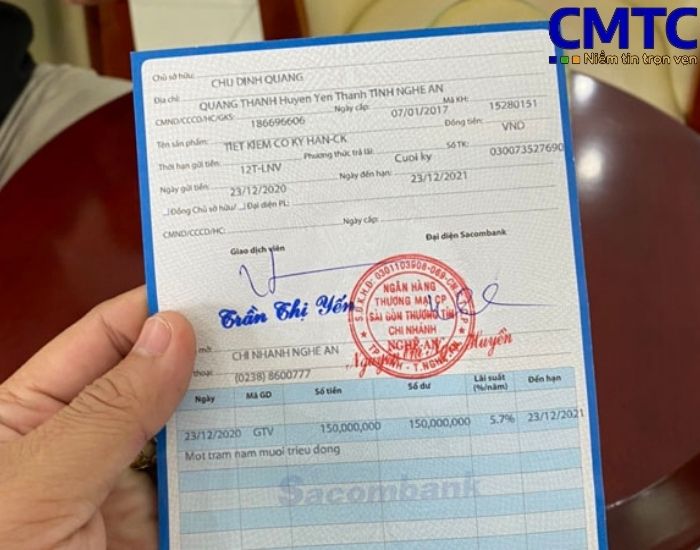 CMTC
Niềm tin trọn vẹn
Chủ sở hữu: CHU DINH QUANG
Địa chỉ: QUANG THANH Huyen Yen Thanh TINH NGHE AN
CMND/CCCD/HC/GKS: 186696606 Ngày cấp: 07/01/2017 Mã KH: 15280151
Tên sản phẩm: TIET KIEM CO KY HAN-CK Đồng tiền: VND
Thời hạn gửi tiền: 12T-LNV Phương thức trả lãi: Cuoi ky Số TK: 030073527690
Ngày gửi tiền: 23/12/2020 Ngày đến hạn: 23/12/2021
Đồng Chủ sở hữu/ Đại diện PL:
CMND/CCCD/HC: Ngày cấp:
Giao dịch viên Đại diện Sacombank
Trần Thị Yến
S.Đ.K.H.Đ: 0301103908-069-CN
NGÂN HÀNG
THƯƠNG MẠI CP
SÀI GÒN THƯƠNG TÍN
CHI NHÁNH
NGHỆ AN
TP. VINH - T. NGHỆ AN
Nguyễn Huyền
mở: CHI NHANH NGHE AN
thoại: (0238) 8600777
Ngày Mã GD Số tiền Số dư Lãi suất (%/năm) Đến hạn
23/12/2020 GTV 150,000,000 150,000,000 5.7% 23/12/2021
Mot tram nam muoi trieu dong
Sacombank